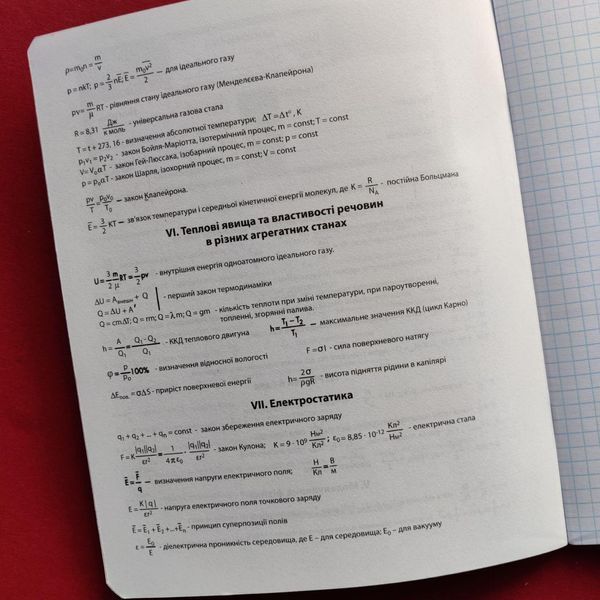 ρ=m₀n = m/v
p = nkT; p = 2/3 nE̅; E̅ = m₀v̅²/2 — для ідеального газу
pv = m/μ RT - рівняння стану ідеального газу (Менделєєва-Клапейрона)
R = 8,31 Дж/к моль - універсальна газова стала
T = t + 273, 16 - визначення абсолютної температури; ΔT = Δt°, K
p₁v₁ = p₂v₂ - закон Бойля-Маріотта, ізотермічний процес, m = const; T = const
V= V₀αT - закон Гей-Люссака, ізобарний процес, m = const; p = const
p = p₀αT - закон Шарля, ізохорний процес, m = const; V = const
pv/T = p₀v₀/T₀ — закон Клапейрона.
E̅ = 3/2 KT — зв'язок температури і середньої кінетичної енергії молекул, де K = R/N_A - постійна Больцмана
VI. Теплові явища та властивості речовин
в різних агрегатних станах
U = 3/2 m/μ RT = 3/2 pv - внутрішня енергія одноатомного ідеального газу.
ΔU = Aзовнішн + Q
Q = ΔU + A' - перший закон термодинаміки
Q = cmΔT; Q = rm; Q = λm; Q = gm - кількість теплоти при зміні температури, при пароутворенні,
топленні, згорянні палива.
h = A/Q₁ = Q₁ - Q₂/Q₁ - ККД теплового двигуна h = T₁ – T₂/T₁ — максимальне значення ККД (цикл Карно)
φ = p/p₀ 100% - визначення відносної вологості F = σl - сила поверхневого натягу
ΔEпов. = σΔS - приріст поверхневої енергії h= 2σ/ρgR - висота підняття рідини в капілярі
VII. Електростатика
q₁ + q₂ + .. + qₙ = const - закон збереження електричного заряду
F = K |q₁||q₂|/εr² = 1/4πε₀ · |q₁||q₂|/εr² - закон Кулона; K = 9 · 10⁹ Нм²/Кл² ; ε₀ = 8,85 · 10⁻¹² Кл²/Нм² - електрична стала
E̅ = F̅/q — визначення напруги електричного поля; Н/Кл = В/м
E = K|q|/εr² - напруга електричного поля точкового заряду
E̅ = E̅₁ + E̅₂ +..+E̅ₙ - принцип суперпозиції полів
ε = E₀/E - діелектрична проникність середовища, де E – для середовища; E₀ – для вакууму